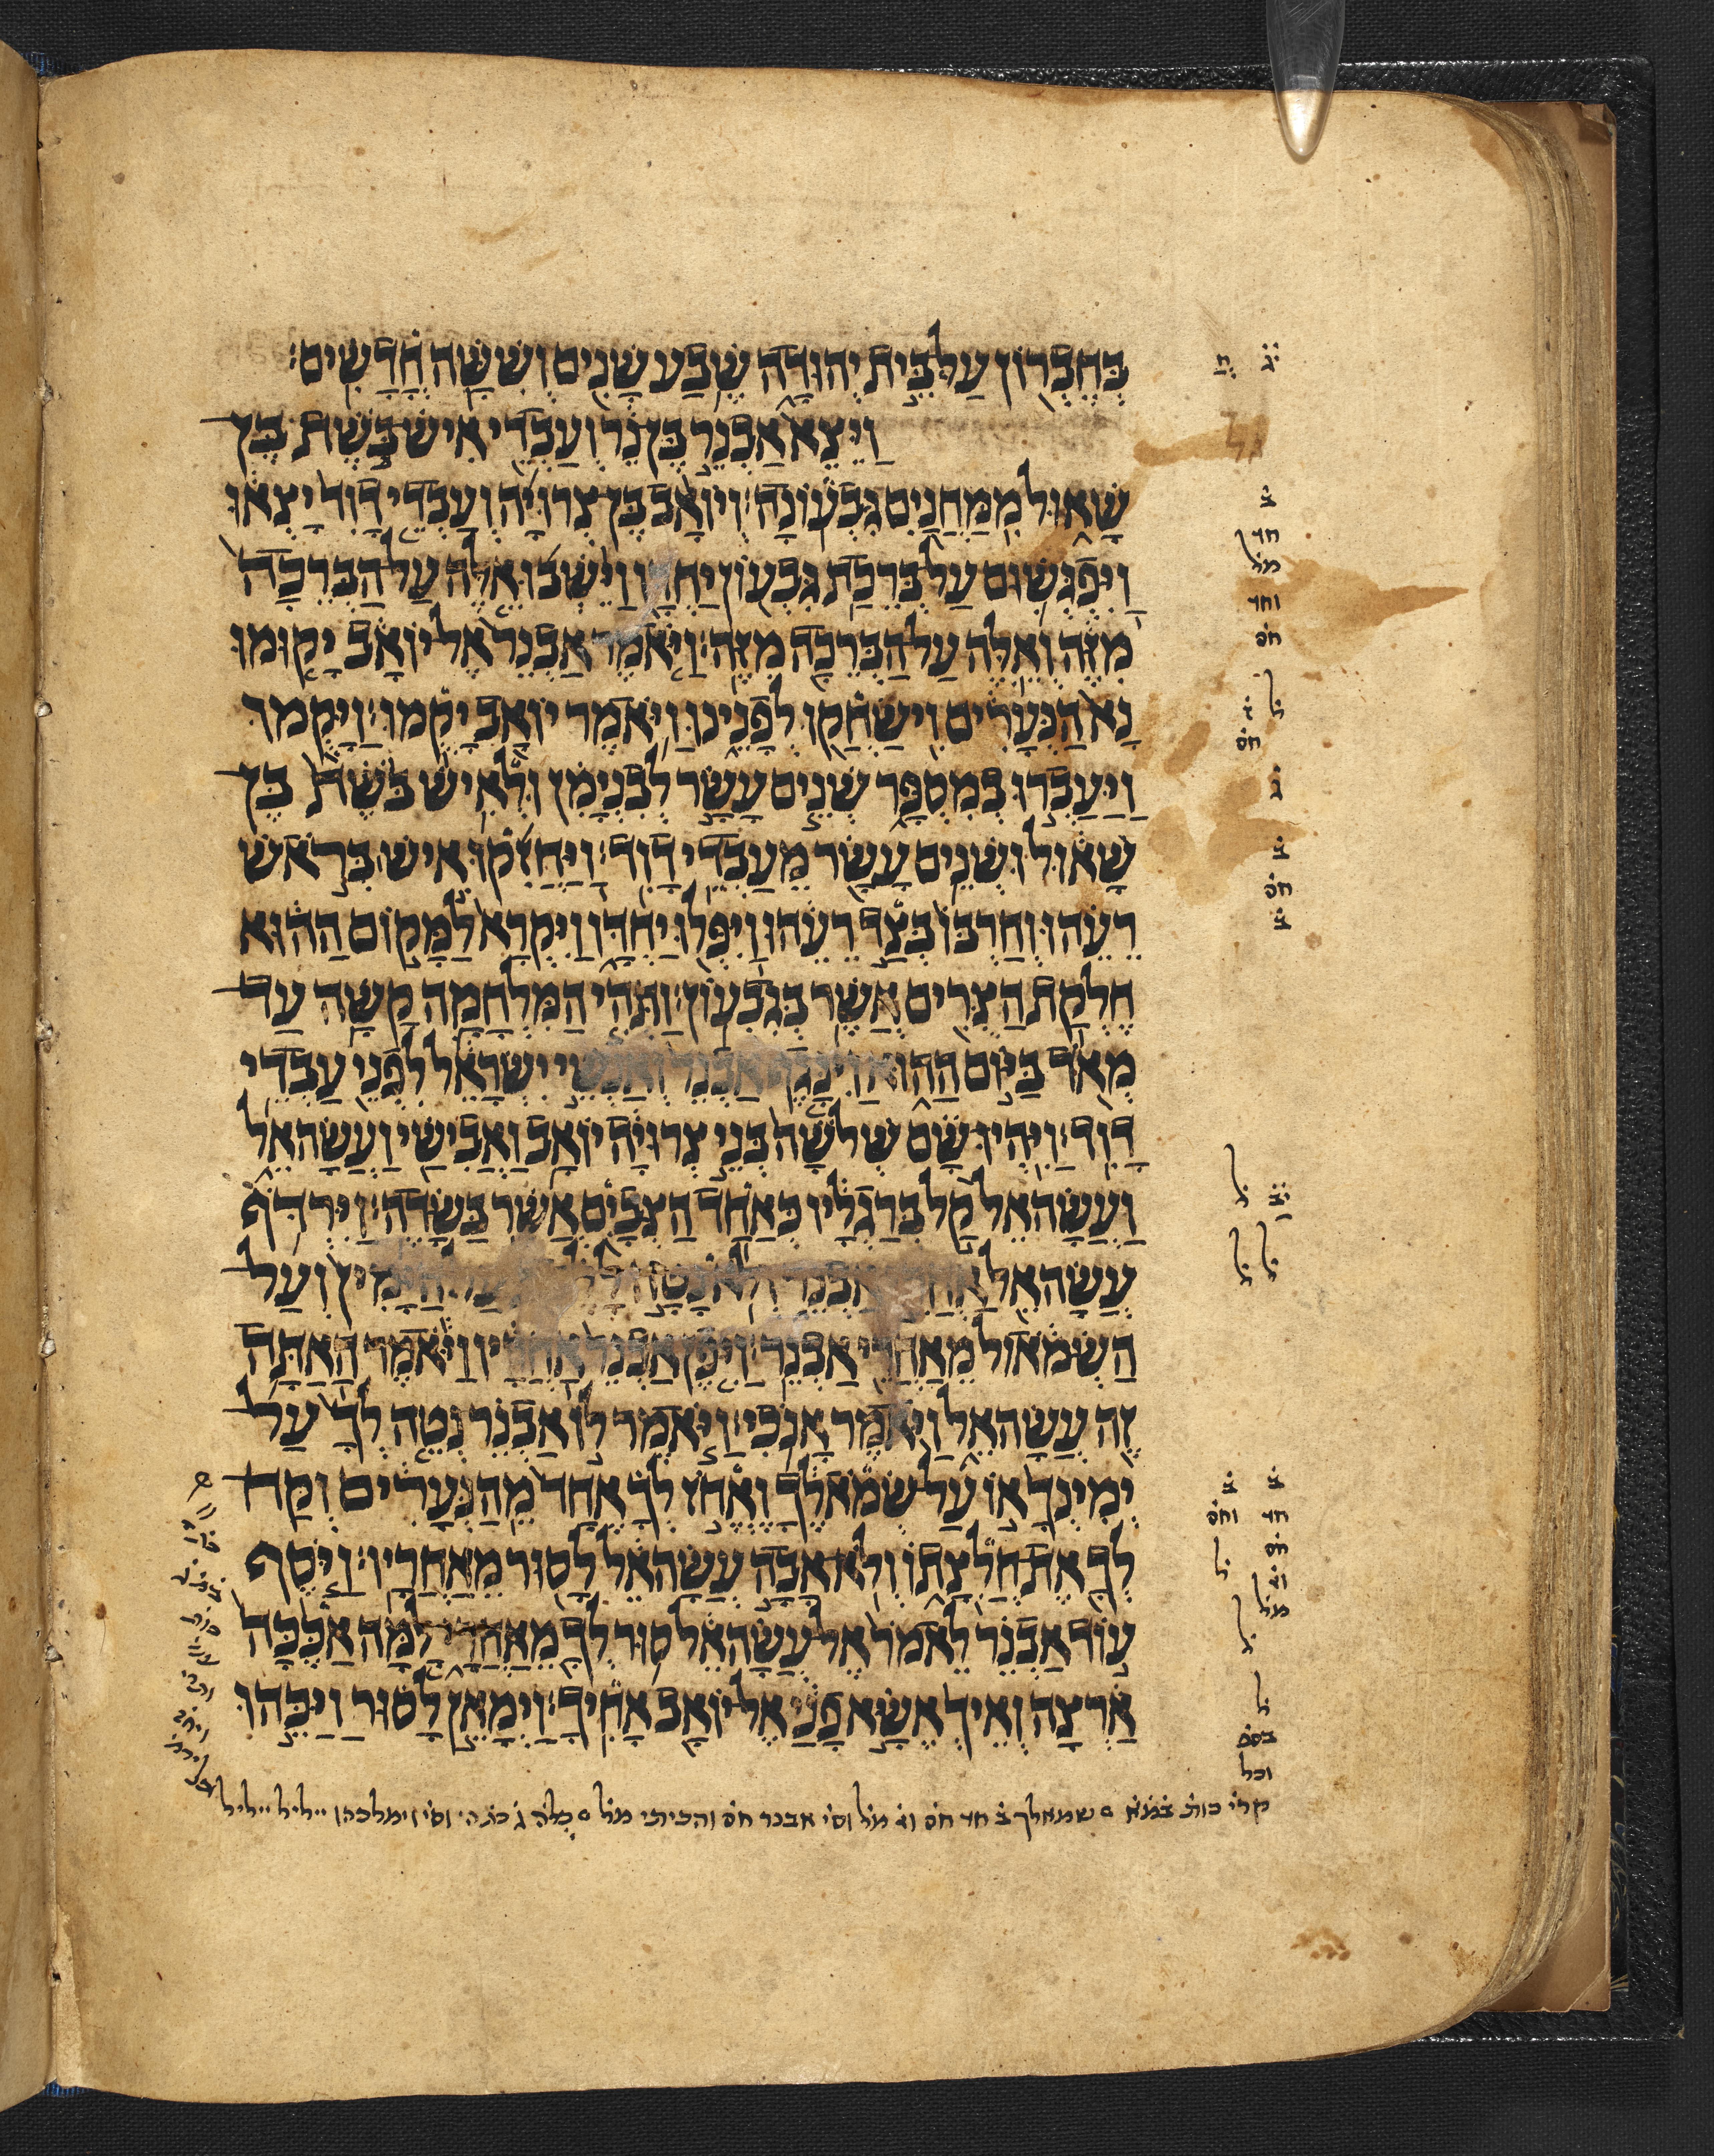 בְּחֶבְרוֹן עַל בֵּית יְהוּדָה שֶׁבַע שָׁנִים וְשִׁשָּׁה חֳדָשִׁים׃
וַיֵּצֵא אַבְנֵר בֶּן נֵר וְעַבְדֵי אִישׁ בֹּשֶׁת בֶּן
שָׁאוּל מִמַּחֲנַיִם גִּבְעוֹנָה׃ וְיוֹאָב בֶּן צְרוּיָה וְעַבְדֵי דָוִד יָצְאוּ
וַיִּפְגְּשׁוּם עַל בְּרֵכַת גִּבְעוֹן יַחְדָּו וַיֵּשְׁבוּ אֵלֶּה עַל הַבְּרֵכָה
מִזֶּה וְאֵלֶּה עַל הַבְּרֵכָה מִזֶּה׃ וַיֹּאמֶר אַבְנֵר אֶל יוֹאָב יָקוּמוּ
נָא הַנְּעָרִים וִישַׂחֲקוּ לְפָנֵינוּ וַיֹּאמֶר יוֹאָב יָקֻמוּ׃ וַיָּקֻמוּ
וַיַּעַבְרוּ בְמִסְפָּר שְׁנֵים עָשָׂר לְבִנְיָמִן וּלְאִישׁ בֹּשֶׁת בֶּן
שָׁאוּל וּשְׁנֵים עָשָׂר מֵעַבְדֵי דָוִד׃ וַיַּחֲזִקוּ אִישׁ בְּרֹאשׁ
רֵעֵהוּ וְחַרְבּוֹ בְּצַד רֵעֵהוּ וַיִּפְּלוּ יַחְדָּו וַיִּקְרָא לַמָּקוֹם הַהוּא
חֶלְקַת הַצֻּרִים אֲשֶׁר בְּגִבְעוֹן׃ וַתְּהִי הַמִּלְחָמָה קָשָׁה עַד
מְאֹד בַּיּוֹם הַהוּא וַיִּנָּגֶף אַבְנֵר וְאַנְשֵׁי יִשְׂרָאֵל לִפְנֵי עַבְדֵי
דָוִד׃ וַיִּהְיוּ שָׁם שְׁלֹשָׁה בְּנֵי צְרוּיָה יוֹאָב וַאֲבִישַׁי וַעֲשָׂהאֵל
וַעֲשָׂהאֵל קַל בְּרַגְלָיו כְּאַחַד הַצְּבָיִם אֲשֶׁר בַּשָּׂדֶה׃ וַיִּרְדֹּף
עֲשָׂהאֵל אַחֲרֵי אַבְנֵר וְלֹא נָטָה לָלֶכֶת עַל הַיָּמִין וְעַל
הַשְּׂמֹאול מֵאַחֲרֵי אַבְנֵר׃ וַיִּפֶן אַבְנֵר אַחֲרָיו וַיֹּאמֶר הַאַתָּה
זֶה עֲשָׂהאֵל וַיֹּאמֶר אָנֹכִי׃ וַיֹּאמֶר לוֹ אַבְנֵר נְטֵה לְךָ עַל
יְמִינְךָ אוֹ עַל שְׂמֹאלֶךָ וֶאֱחֹז לְךָ אֶחָד מֵהַנְּעָרִים וְקַח
לְךָ אֶת חֲלִצָתוֹ וְלֹא אָבָה עֲשָׂהאֵל לָסוּר מֵאַחֲרָיו׃ וַיֹּסֶף
עוֹד אַבְנֵר לֵאמֹר אֶל עֲשָׂהאֵל סוּר לְךָ מֵאַחֲרָי לָמָּה אַכֶּכָּה
אַרְצָה וְאֵיךְ אֶשָּׂא פָנַי אֶל יוֹאָב אָחִיךָ׃ וַיְמָאֵן לָסוּר וַיַּכֵּהוּ
ב
חד
מל
וחד
חס
ל
ז
חס
ג
ב
חס
ב
ל יב
ל ל
ב ב
חד וחס
חס
וג
מל
ל
ל
בסס
וכל
שמאלך ב חד חס וג מל וסי אבנר חס והכיתי מל